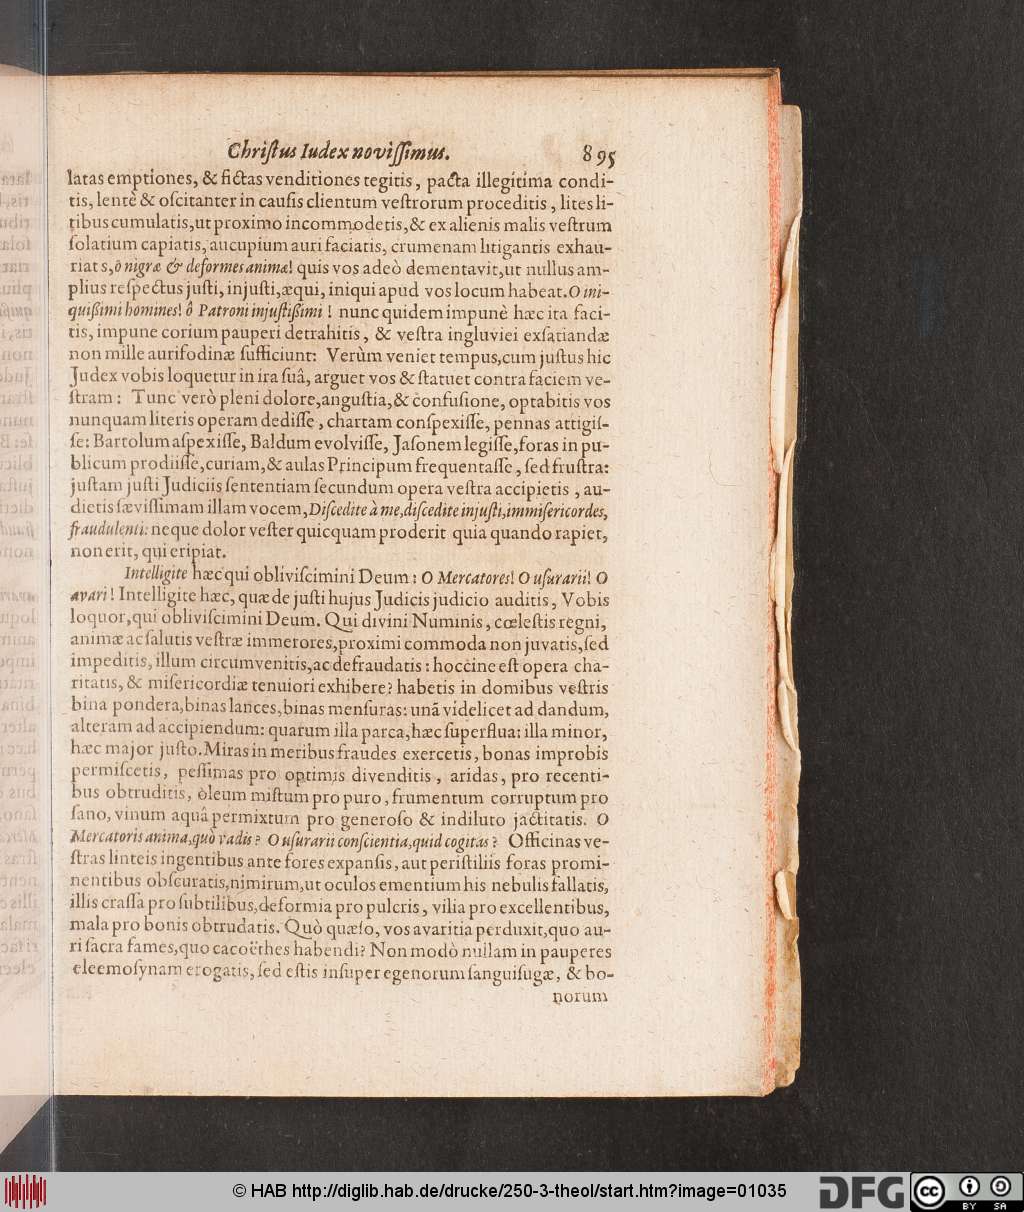 Chriſtus Iudex noviſſimus. 895
latas emptiones, & fictas venditiones tegitis, pacta illegitima condi-
tis, lentè & oſcitanter in cauſis clientum veſtrorum proceditis, lites li-
tibus cumulatis, ut proximo incommodetis, & ex alienis malis veſtrum
ſolatium capiatis, aucupium auri faciatis, crumenam litigantis exhau-
riatis, ô nigræ & deformes animæ! quis vos adeò dementavit, ut nullus am-
plius reſpectus juſti, injuſti, æqui, iniqui apud vos locum habeat. O ini-
quißimi homines! ô Patroni injuſtißimi! nunc quidem impunè hæc ita faci-
tis, impune corium pauperi detrahitis, & veſtra ingluviei exſatiandæ
non mille aurifodinæ ſufficiunt: Verùm veniet tempus, cum juſtus hic
Judex vobis loquetur in ira ſuâ, arguet vos & ſtatuet contra faciem ve-
ſtram: Tunc verò pleni dolore, anguſtia, & confuſione, optabitis vos
nunquam literis operam dediſſe, chartam conſpexiſſe, pennas attigiſ-
ſe: Bartolum aſpexiſſe, Baldum evolviſſe, Jaſonem legiſſe, foras in pu-
blicum prodiiſſe, curiam, & aulas Principum frequentaſſe, ſed fruſtra:
juſtam juſti Judiciis ſententiam ſecundum opera veſtra accipietis, au-
dietis ſæviſſimam illam vocem, Diſcedite à me, diſcedite injuſti, immiſericordes,
fraudulenti: neque dolor veſter quicquam proderit quia quando rapiet,
non erit, qui eripiat.
Intelligite hæc qui obliviſcimini Deum: O Mercatores! O uſurarii! O
avari! Intelligite hæc, quæ de juſti hujus Judicis judicio auditis, Vobis
loquor, qui obliviſcimini Deum. Qui divini Numinis, cœleſtis regni,
animæ ac ſalutis veſtræ immerores, proximi commoda non juvatis, ſed
impeditis, illum circumvenitis, ac defraudatis: hoccine eſt opera cha-
ritatis, & miſericordiæ tenuiori exhibere? habetis in domibus veſtris
bina pondera, binas lances, binas menſuras: unã videlicet ad dandum,
alteram ad accipiendum: quarum illa parca, hæc ſuperflua: illa minor,
hæc major juſto. Miras in meribus fraudes exercetis, bonas improbis
permiſcetis, peſſimas pro optimis divenditis, aridas, pro recenti-
bus obtruditis, òleum miſtum pro puro, frumentum corruptum pro
ſano, vinum aquâ permixtum pro generoſo & indiluto jactitatis. O
Mercatoris anima, quò vadis? O uſurarii conſcientia, quid cogitas? Officinas ve-
ſtras linteis ingentibus ante fores expanſis, aut periſtiliis foras promi-
nentibus obſcuratis, nimirum, ut oculos ementium his nebulis fallatis,
illis craſſa pro ſubtilibus, deformia pro pulcris, vilia pro excellentibus,
mala pro bonis obtrudatis. Quò quæſo, vos avaritia perduxit, quo au-
ri ſacra fames, quo cacoëthes habendi? Non modò nullam in pauperes
eleemoſynam erogatis, ſed eſtis inſuper egenorum ſanguiſugæ, & bo-
norum
© HAB http://diglib.hab.de/drucke/250-3-theol/start.htm?image=01035
DFG
cc BY SA